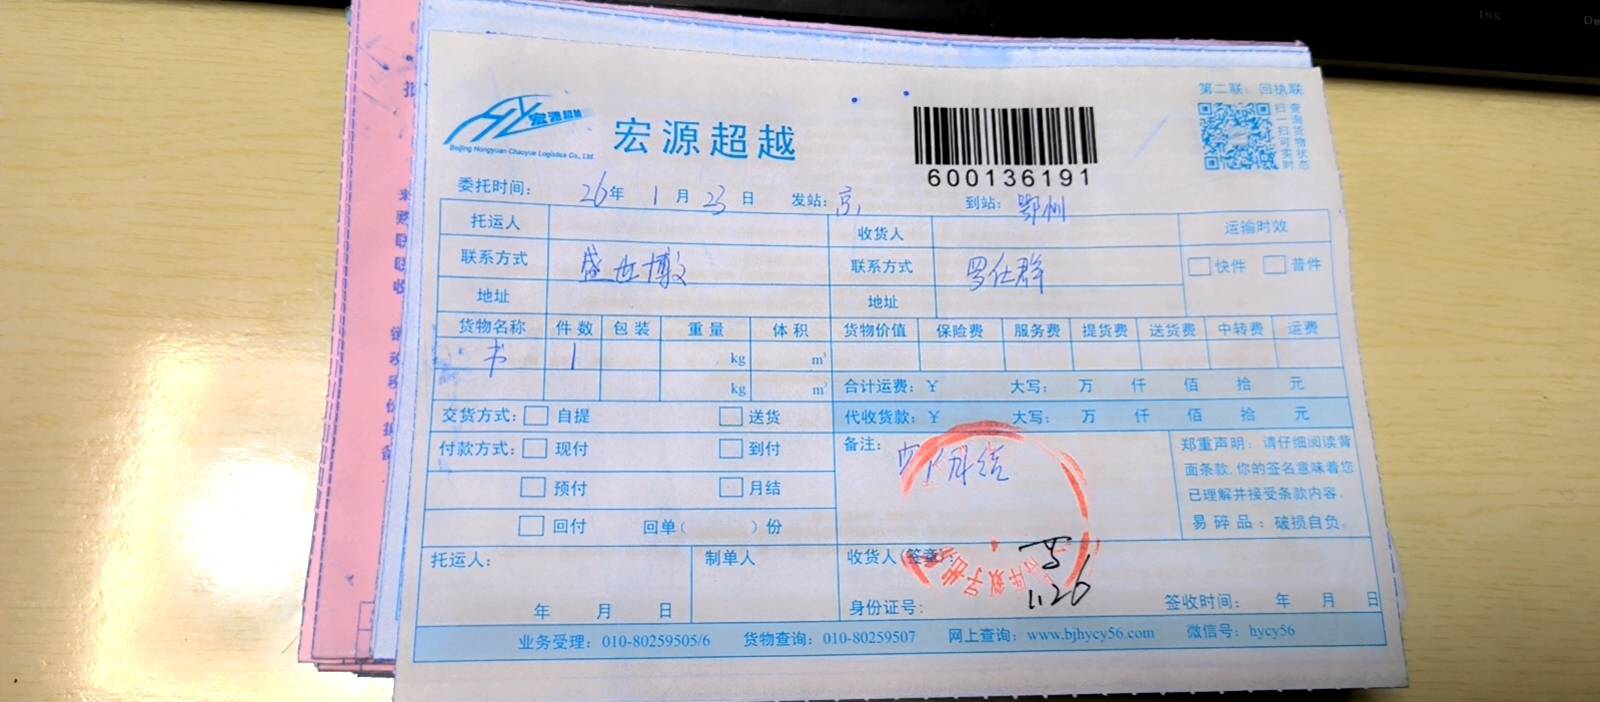 Ins
De
第二联：回执联
扫一扫可实时
查询货物状态
宏源超越
Beijing Hongyuan Chaoyue Logistics Co., Ltd.
宏源超越
600136191
委托时间： 26年 1月 23日 发站：京 到站：鄂州
托运人 收货人 运输时效
联系方式 盛世博文 联系方式 罗仕群 快件 普件
地址 地址
货物名称 件数 包装 重量 体积 货物价值 保险费 服务费 提货费 送货费 中转费 运费
书 1 kg m³
kg m³ 合计运费：¥ 大写： 万 仟 佰 拾 元
交货方式： 自提 送货 代收货款：¥ 大写： 万 仟 佰 拾 元
付款方式： 现付 到付 备注： 月结
预付 月结
回付 回单（ ）份
郑重声明：请仔细阅读背
面条款，你的签名意味着您
已理解并接受条款内容。
易碎品：破损自负。
托运人： 制单人 收货人（签章）：
1.26
年 月 日 身份证号： 签收时间： 年 月 日
业务受理：010-80259505/6 货物查询：010-80259507 网上查询：www.bjhycy56.com 微信号：hycy56